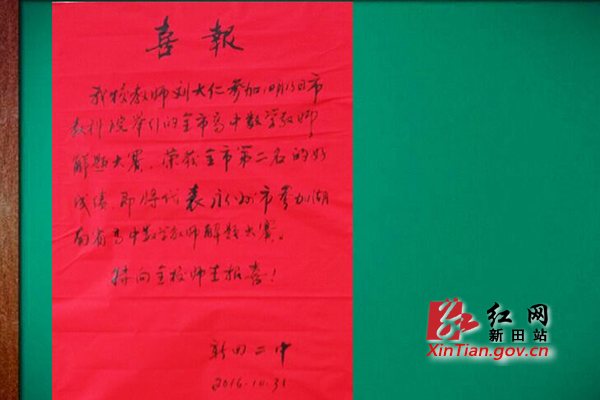 喜報
我校教师刘大仁参加10月15日市
教科院举行的全市高中数学教师
解题大赛，荣获全市第二名的好
成绩，即将代表永州市参加湖
南省高中数学教师解题大赛。
特向全校师生报喜！
新田二中
2016.10.31
红网
新田站
XinTian.gov.cn